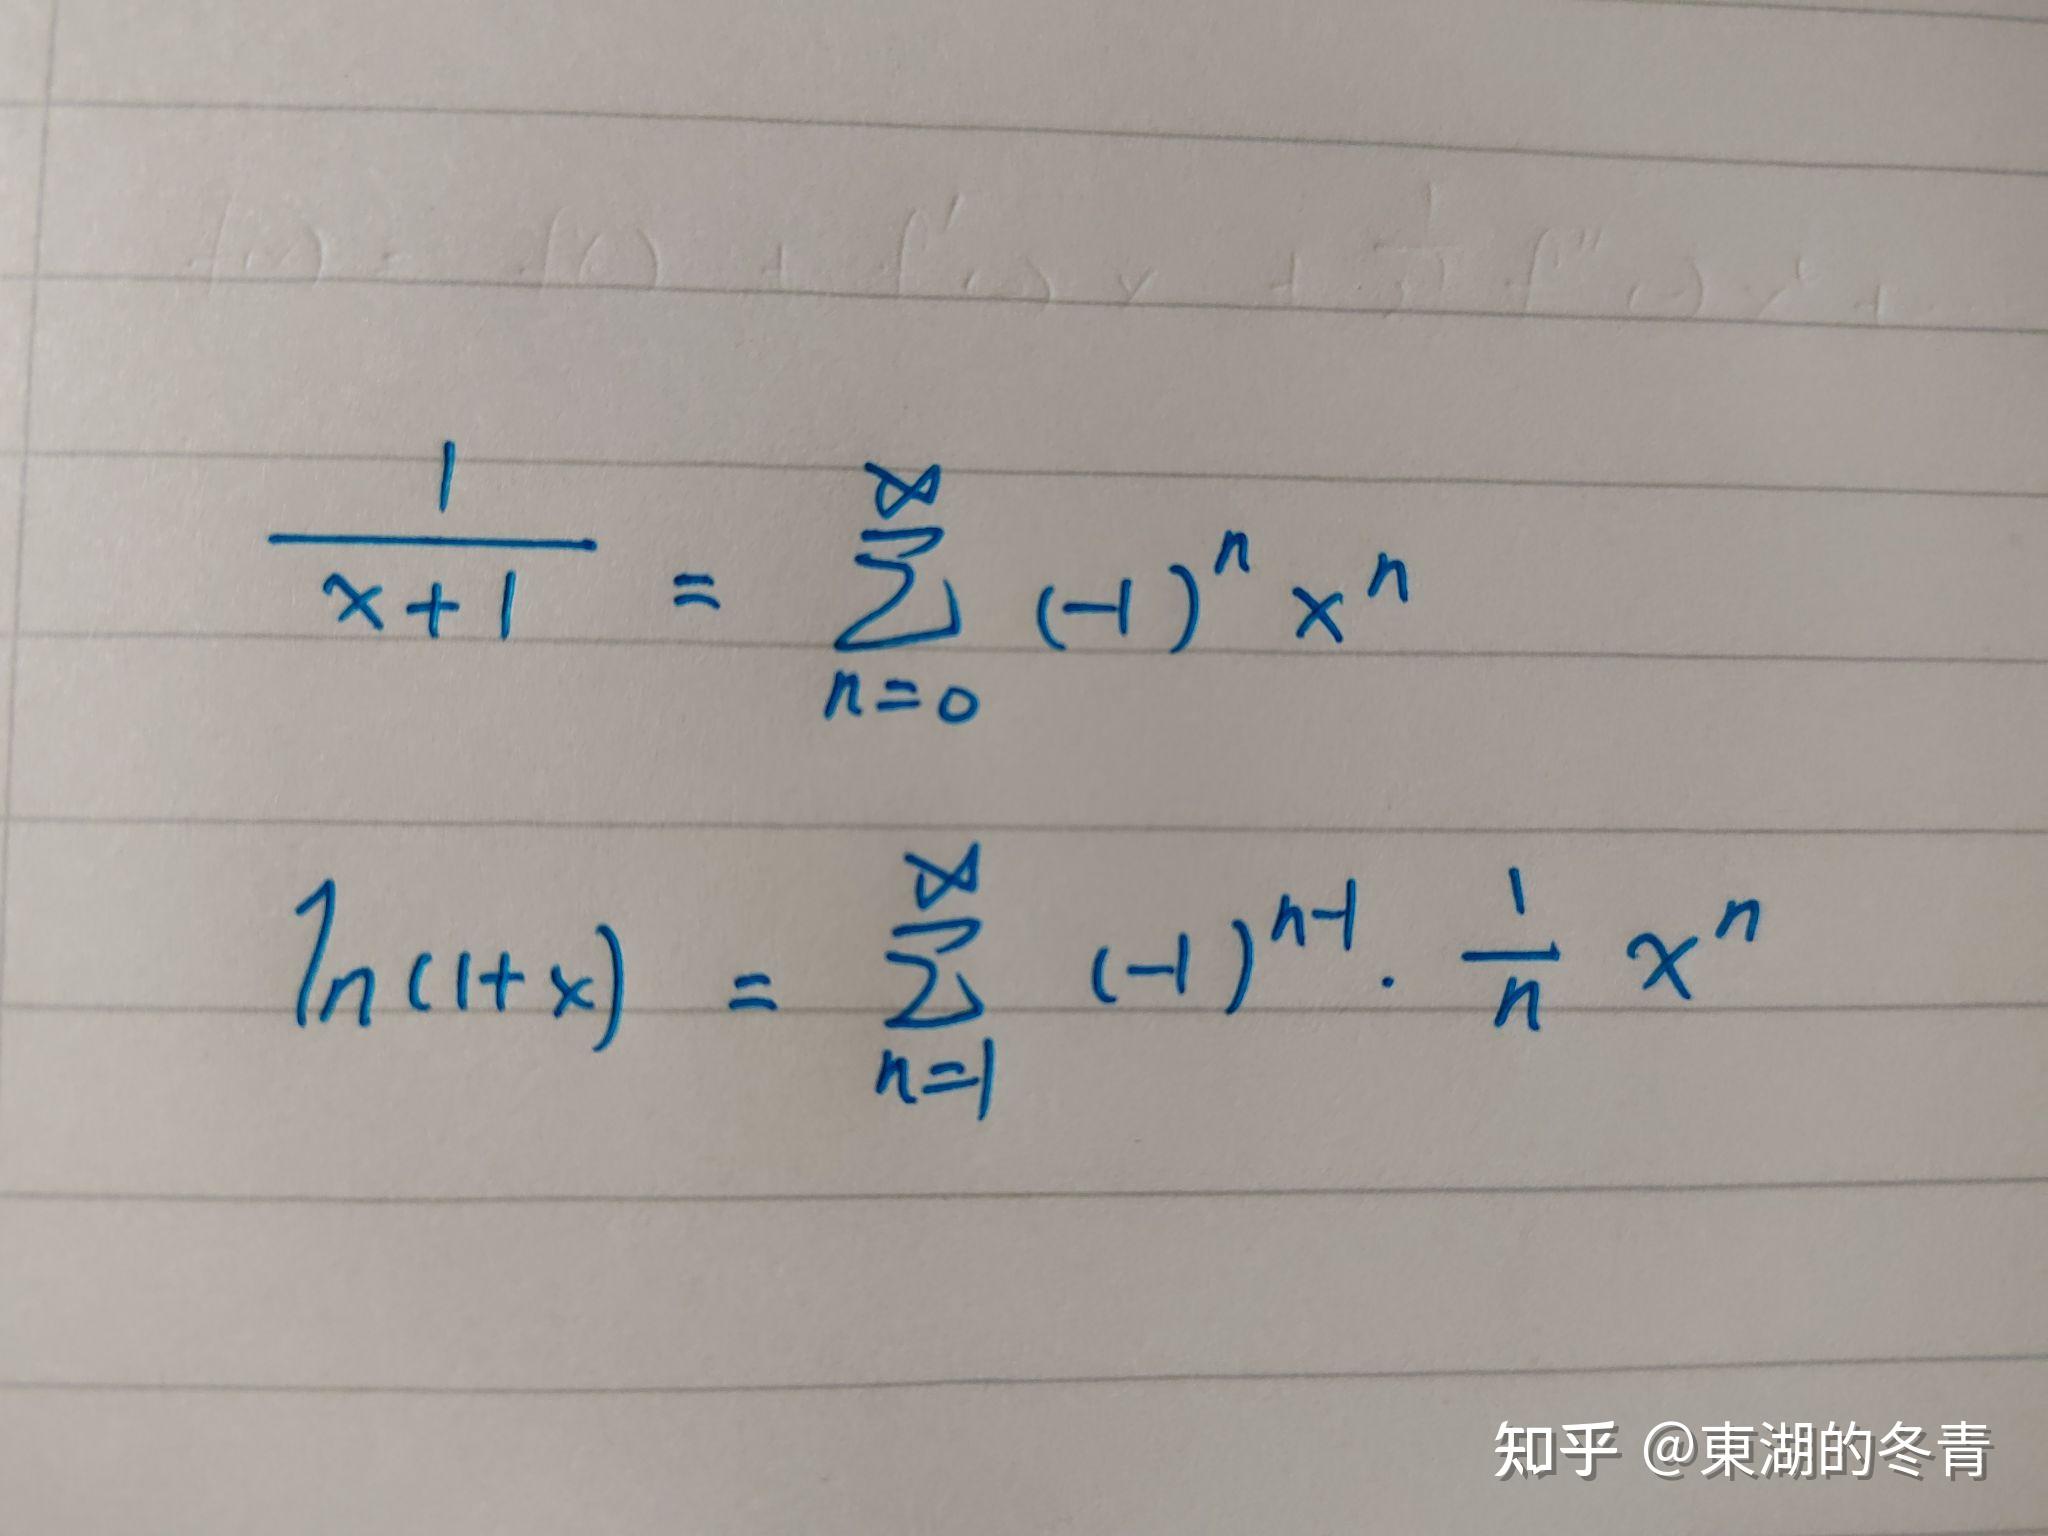 1/(x+1) = ∑_{n=0}^{∞} (-1)^n x^n
ln(1+x) = ∑_{n=1}^{∞} (-1)^{n-1} · 1/n x^n
知乎 @東湖的冬青